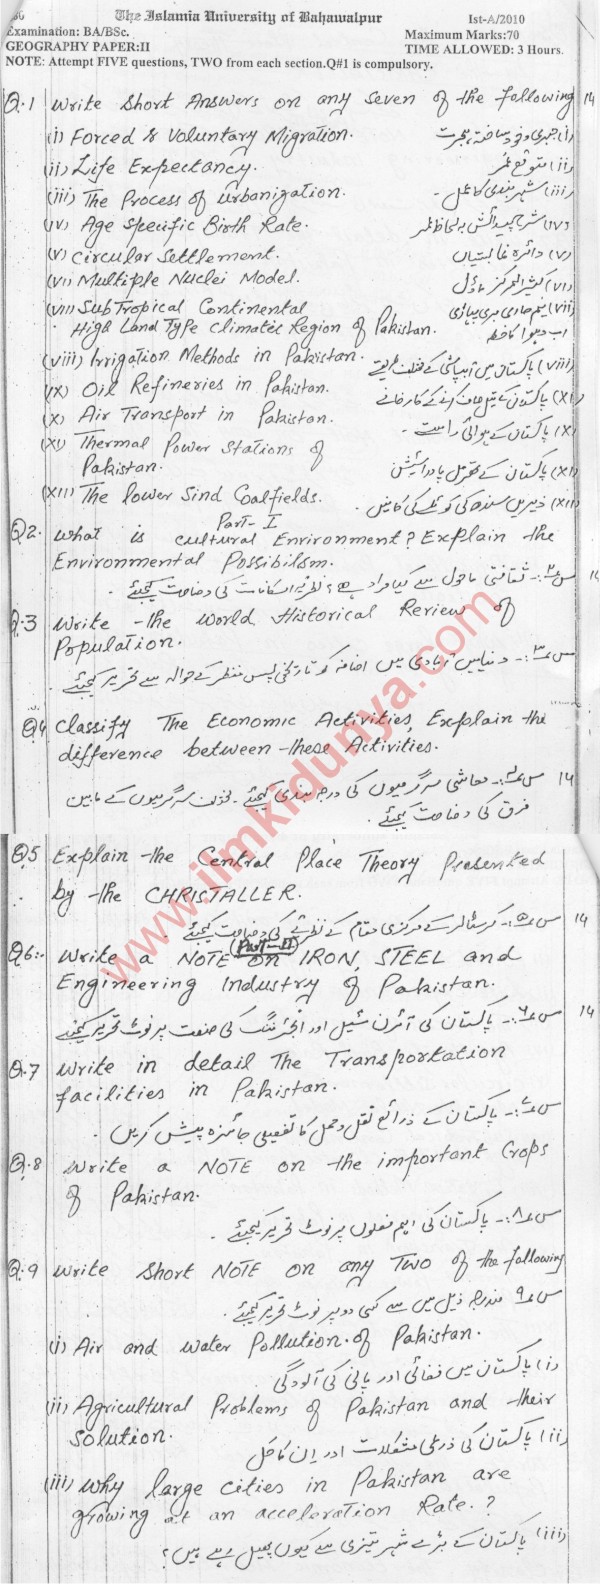 The Islamia University of Bahawalpur Ist-A/2010
Examination: BA/BSc. Maximum Marks:70
GEOGRAPHY PAPER:II TIME ALLOWED: 3 Hours.
NOTE: Attempt FIVE questions, TWO from each section.Q#1 is compulsory.
Q.1 Write Short Answers on any Seven of the following 14
(i) Forced & Voluntary Migration. (i) جبری و خود ساختہ ہجرت
(ii) Life Expectancy. (ii) متوقع عمر
(iii) The Process of Urbanization. (iii) شہر بندی کا عمل۔
(iv) Age Specific Birth Rate. (iv) شرح پیدائش بہ لحاظ عمر
(v) Circular Settlement. (v) دائرہ نما بستیاں
(vi) Multiple Nuclei Model. (vi) کثیر المرکز ماڈل
(vii) Sub Tropical Continental (vii) نیم حاری بری پہاڑی
High Land Type Climatic Region of Pakistan. آب و ہوا کا خطہ
(viii) Irrigation Methods in Pakistan. (viii) پاکستان میں آبپاشی کے مختلف طریقے
(ix) Oil Refineries in Pakistan. (xi) پاکستان کے تیل صاف کرنے کے کارخانے
(x) Air Transport in Pakistan. (x) پاکستان کے ہوائی راستے۔
(xi) Thermal Power Stations of
Pakistan. (xi) پاکستان کے تھرمل پاور اسٹیشن
(xii) The lower Sind Coalfields. (xii) زیریں سندھ کی کوئلے کی کانیں۔
Part-I
Q2. What is cultural Environment? Explain the
Environmental Possibilism.
س نمبر ۲:- ثقافتی ماحول سے کیا مراد ہے؟ نظریہ امکانات کی وضاحت کیجئے۔ 14
Q.3 Write the World Historical Review of
Population.
س نمبر ۳:- دنیا میں آبادی میں اضافہ کو تاریخی پس منظر کے حوالہ سے تحریر کیجئے۔
Q4 Classify The Economic Activities, Explain the
difference between these Activities.
س نمبر ۴:- معاشی سرگرمیوں کی درجہ بندی کیجئے۔ مختلف سرگرمیوں کے مابین 14
فرق کی وضاحت کیجئے۔
Q5 Explain the Central Place Theory Presented
by the CHRISTALLER.
س نمبر ۵:- کرسٹالر کے مرکزی مقام کے نظریے کی وضاحت کیجئے۔ 14
(Part-II)
Q6:- Write a NOTE on IRON, STEEL and
Engineering Industry of Pakistan.
س نمبر ۶:- پاکستان کی آئرن سٹیل اور انجینئرنگ کی صنعت پر نوٹ تحریر کیجئے 14
Q.7 Write in detail The Transportation
facilities in Pakistan.
س نمبر ۷:- پاکستان کے ذرائع نقل و حمل کا تفصیلی جائزہ پیش کریں۔
Q.8 Write a NOTE on the important Crops
of Pakistan.
س نمبر ۸:- پاکستان کی اہم فصلوں پر نوٹ تحریر کیجئے۔
Q.9 Write Short NOTE on any Two of the following
س نمبر ۹ مندرجہ ذیل میں سے کسی دو پر نوٹ تحریر کیجئے۔
(i) Air and water Pollution of Pakistan.
(i) پاکستان میں فضائی اور پانی کی آلودگی
(ii) Agricultural Problems of Pakistan and their
Solution. (ii) پاکستان کی زرعی مشکلات اور ان کا حل
(iii) Why large cities in Pakistan are
growing at an acceleration Rate.?
(iii) پاکستان کے بڑے شہر تیزی سے کیوں پھیل رہے ہیں؟
www.ilmkidunya.com